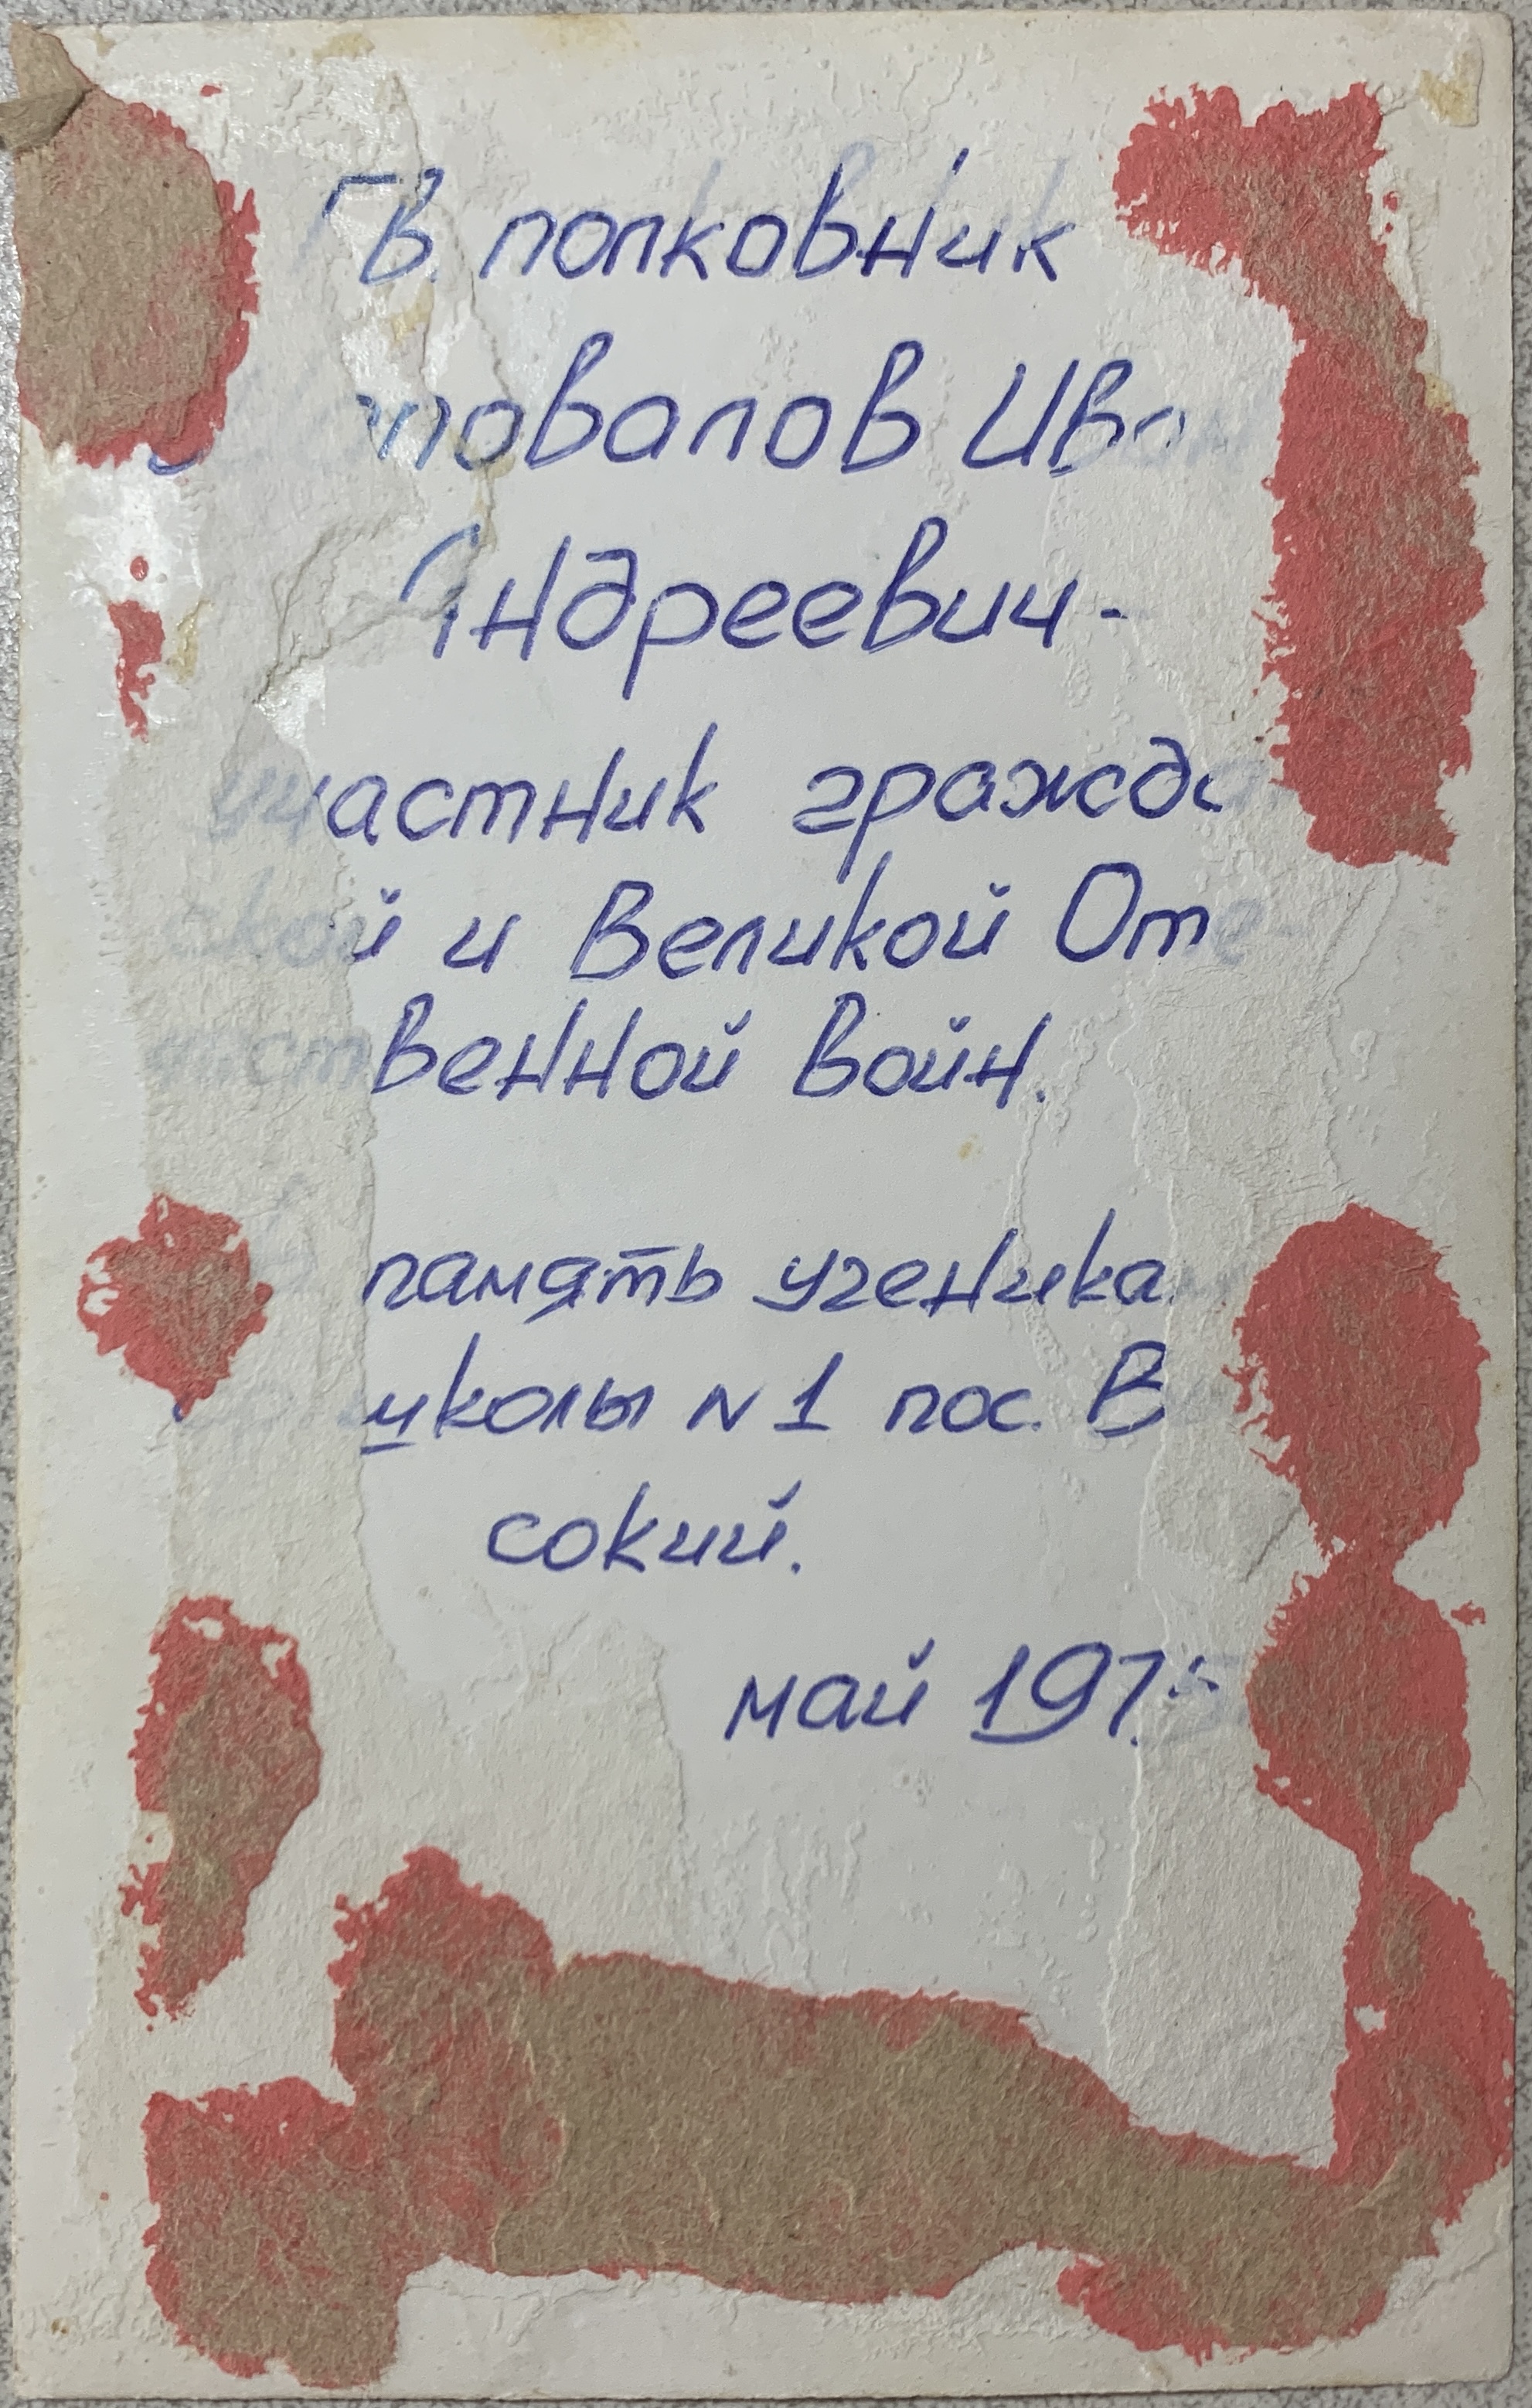 Гв. полковник
Андреевич-
участник гражда
ской и Великой Оте-
чественной войн.
память ученикам
школы №1 пос. Вы
сокий.
май 197